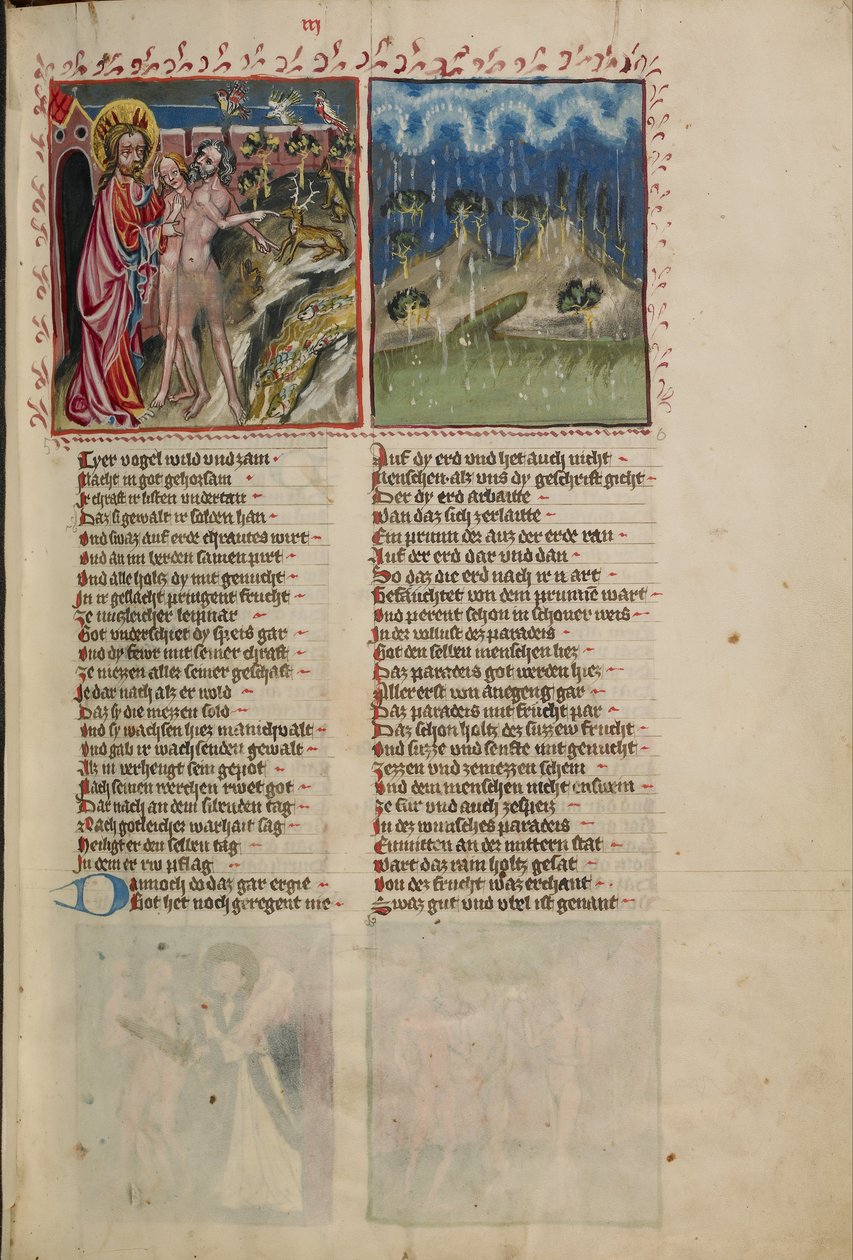 iij
Tyer vogel wild vnd zam
Macht in got gehorsam
Ir chraft ir listen vndertan
Daz si gewalt ir solden han
Vnd swaz auf erde chrautes wirt
Vnd an im berden samen pirt
Vnd alle holtz dy mit genucht
In ir geslächt pringent frucht
Ze nutzleicher leipnar
Got vnderschiet dy speis gar
Vnd dy fewr mit seiner chraft
Ze niezzen aller seiner geschaft
Ie dar nach alz er wold
Daz sy die niezzen sold
Vnd sy wachsen hiez manichualt
Vnd gab ir wachsenden gewalt
Alz in verhengt sein gepot
Nach seinen werchen rwet got
Dar nach an dem sibenden tag
Nach gotleicher warhait sag
Heiligt er den selben tag
In dem er rw pflag
Dannoch do daz gar ergie
Got het noch geregent nie
5
6
Auf dy erd vnd het auch nicht
Menschen alz vns dy geschrift gicht
Der dy erd arbaitte
Wan daz sich zerlaitte
Ein prunn der auz der erde ran
Auf der erd dar vnd dan
So daz die erd nach ir n art
Gefäuchtet von dem prunne wart
Vnd perent schon in schoner weis
In der wollust dez paradeis
Got den selben menschen liez
Daz paradeis got werden hiez
Aller erst von anegeng gar
Daz paradeis mit frucht par
Daz schon holtz dez suzzew frucht
Vnd suzze vnd senfte mit genucht
Zezzen vnd zeniezzen schein
Vnd dem menschen nicht enswein
Ze fur vnd auch zespeiz
In dez wunsches paradeis
Enmitten an der mittern stat
Wart daz ram holtz gesat
Von dez frucht waz erchant
Swaz gut vnd vbel ist genant